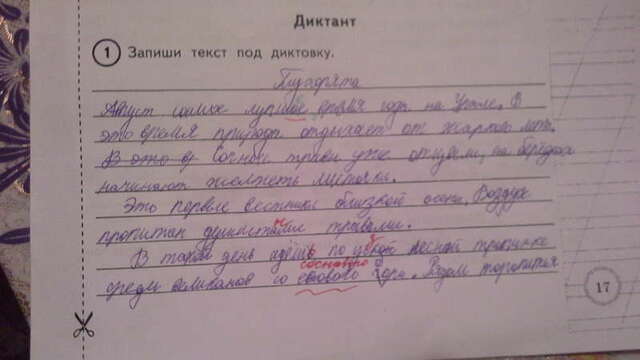 Диктант
1 Запиши текст под диктовку.
Август самое лутшое время года на Урале. В
это время природа отдыхает от жаркого лета.
В это вр Сочные травы уже отцвели, на берёзах
начинают желтеть листочки.
Это первые вестники близкой осени. Воздух
пропитан душистыми травами.
В такой день идёшь по узкой лесной тропинке
соснового
среди великанов со бора. Рядом торопится
17